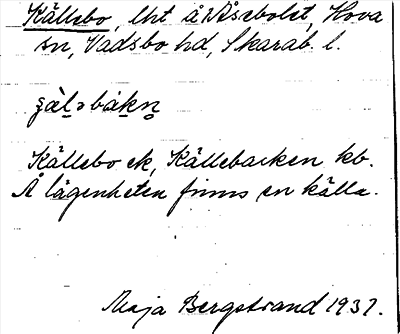 Källebo, lht å Åsebolet, Hova
sn, Vadsbo hd, Skarab. l.
Källebo ek, Källebacken kb.
Å lägenheten finns en källa.
Maja Bergstrand 1937.